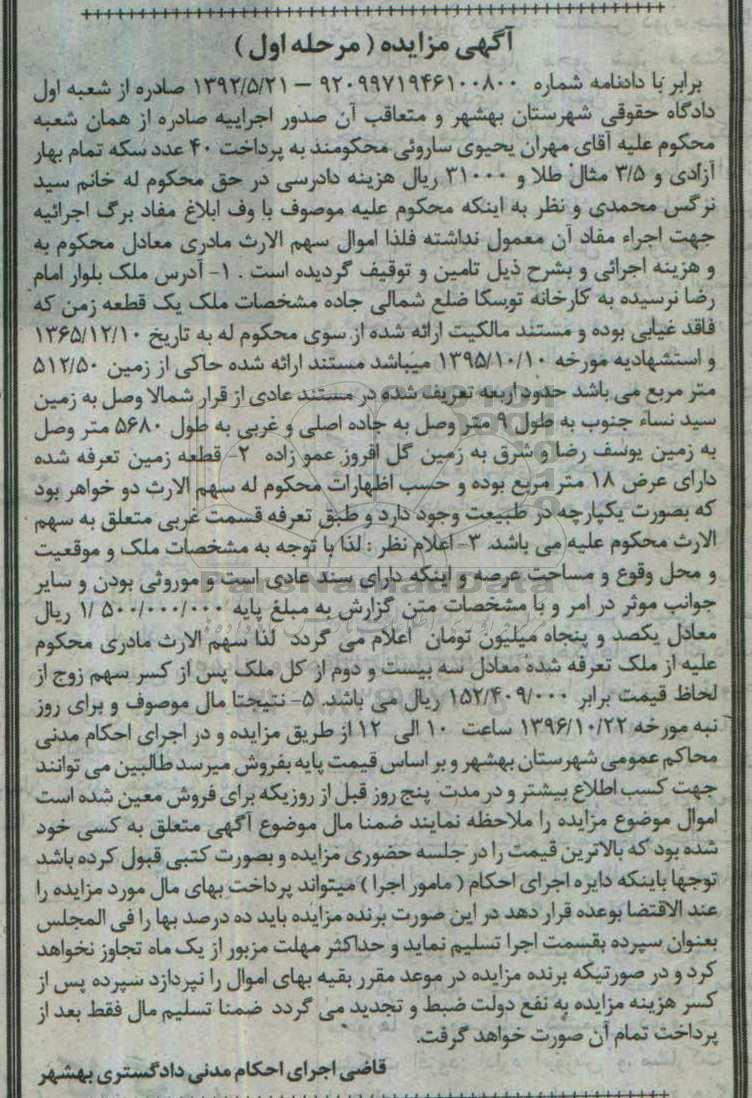 آگهی مزایده ( مرحله اول )
برابر با دادنامه شماره ۹۲۰۹۹۷۱۹۴۶۱۰۰۸۰۰ – ۱۳۹۲/۵/۲۱ صادره از شعبه اول
دادگاه حقوقی شهرستان بهشهر و متعاقب آن صدور اجراییه صادره از همان شعبه
محکوم علیه آقای مهران یحیوی ساروئی محکومند به پرداخت ۴۰ عدد سکه تمام بهار
آزادی و ۳/۵ مثال طلا و ۳۱۰۰۰ ریال هزینه دادرسی در حق محکوم له خانم سید
نرگس محمدی و نظر به اینکه محکوم علیه موصوف با وف ابلاغ مفاد برگ اجرائیه
جهت اجراء مفاد آن معمول نداشته فلذا اموال سهم الارث مادری معادل محکوم به
و هزینه اجرائی و بشرح ذیل تامین و توقیف گردیده است . ۱- آدرس ملک بلوار امام
رضا نرسیده به کارخانه توسکا ضلع شمالی جاده مشخصات ملک یک قطعه زمن که
فاقد غیابی بوده و مستند مالکیت ارائه شده از سوی محکوم له به تاریخ ۱۳۶۵/۱۲/۱۰
و استشهادیه مورخه ۱۳۹۵/۱۰/۱۰ میباشد مستند ارائه شده حاکی از زمین ۵۱۲/۵۰
متر مربع می باشد حدود اربعه تعریف شده در مستند عادی از قرار شمالا وصل به زمین
سید نساء جنوب به طول ۹ متر وصل به جاده اصلی و غربی به طول ۵۶۸۰ متر وصل
به زمین یوسف رضا و شرق به زمین گل افروز عمو زاده ۲- قطعه زمین تعرفه شده
دارای عرض ۱۸ متر مربع بوده و حسب اظهارات محکوم له سهم الارث دو خواهر بود
که بصورت یکپارچه در طبیعت وجود دارد و طبق تعرفه قسمت غربی متعلق به سهم
الارث محکوم علیه می باشد. ۳- اعلام نظر : لذا با توجه به مشخصات ملک و موقعیت
و محل وقوع و مساحت عرصه و اینکه دارای سند عادی است و موروثی بودن و سایر
جوانب موثر در امر و با مشخصات متن گزارش به مبلغ پایه ۱/۵۰۰/۰۰۰/۰۰۰ ریال
معادل یکصد و پنجاه میلیون تومان اعلام می گردد لذا سهم الارث مادری محکوم
علیه از ملک تعرفه شده معادل سه بیست و دوم از کل ملک پس از کسر سهم زوج از
لحاظ قیمت برابر ۱۵۲/۴۰۹/۰۰۰ ریال می باشد. ۵- نتیجتا مال موصوف و برای روز
نبه مورخه ۱۳۹۶/۱۰/۲۲ ساعت ۱۰ الی ۱۲ از طریق مزایده و در اجرای احکام مدنی
محاکم عمومی شهرستان بهشهر و بر اساس قیمت پایه بفروش میرسد طالبین می توانند
جهت کسب اطلاع بیشتر و در مدت پنج روز قبل از روزیکه برای فروش معین شده است
اموال موضوع مزایده را ملاحظه نمایند ضمنا مال موضوع آگهی متعلق به کسی خود
شده بود که بالاترین قیمت را در جلسه حضوری مزایده و بصورت کتبی قبول کرده باشد
توجها باینکه دایره اجرای احکام ( مامور اجرا ) میتواند پرداخت بهای مال مورد مزایده را
عند الاقتضا بوعده قرار دهد در این صورت برنده مزایده باید ده درصد بها را فی المجلس
بعنوان سپرده بقسمت اجرا تسلیم نماید و حداکثر مهلت مزبور از یک ماه تجاوز نخواهد
کرد و در صورتیکه برنده مزایده در موعد مقرر بقیه بهای اموال را نپردازد سپرده پس از
کسر هزینه مزایده به نفع دولت ضبط و تجدید می گردد ضمنا تسلیم مال فقط بعد از
پرداخت تمام آن صورت خواهد گرفت.
قاضی اجرای احکام مدنی دادگستری بهشهر
ParsNamadData